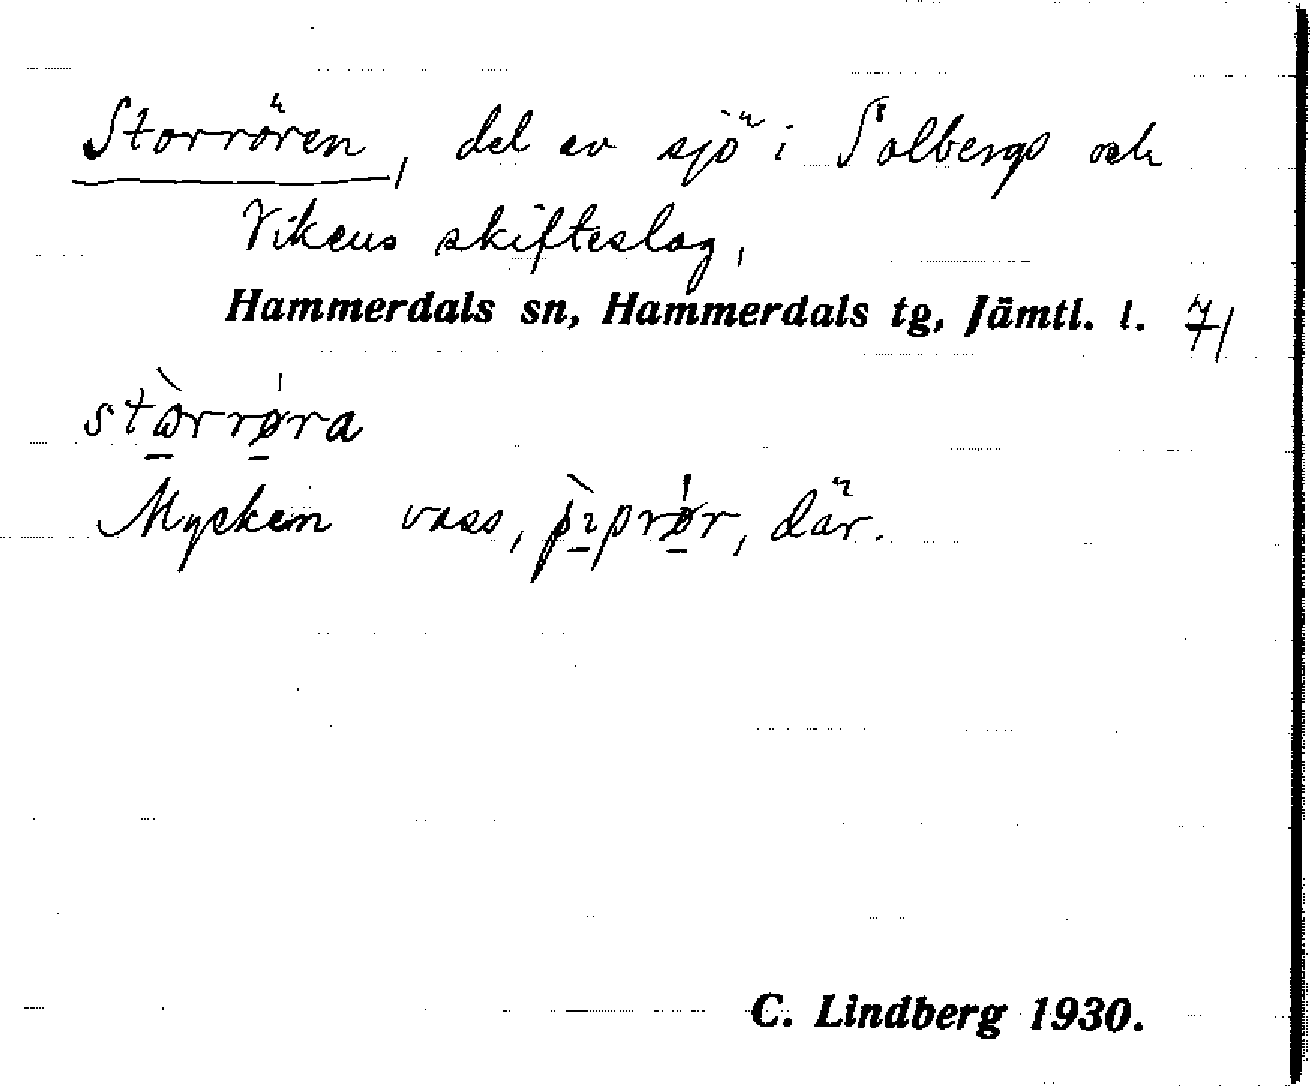 Storrören, del av sjö i Solbergs och
Vikens skifteslag,
Hammerdals sn, Hammerdals tg, Jämtl. l. 71
stòrrǿra
Mycken vass, pìprǿr, där.
C. Lindberg 1930.